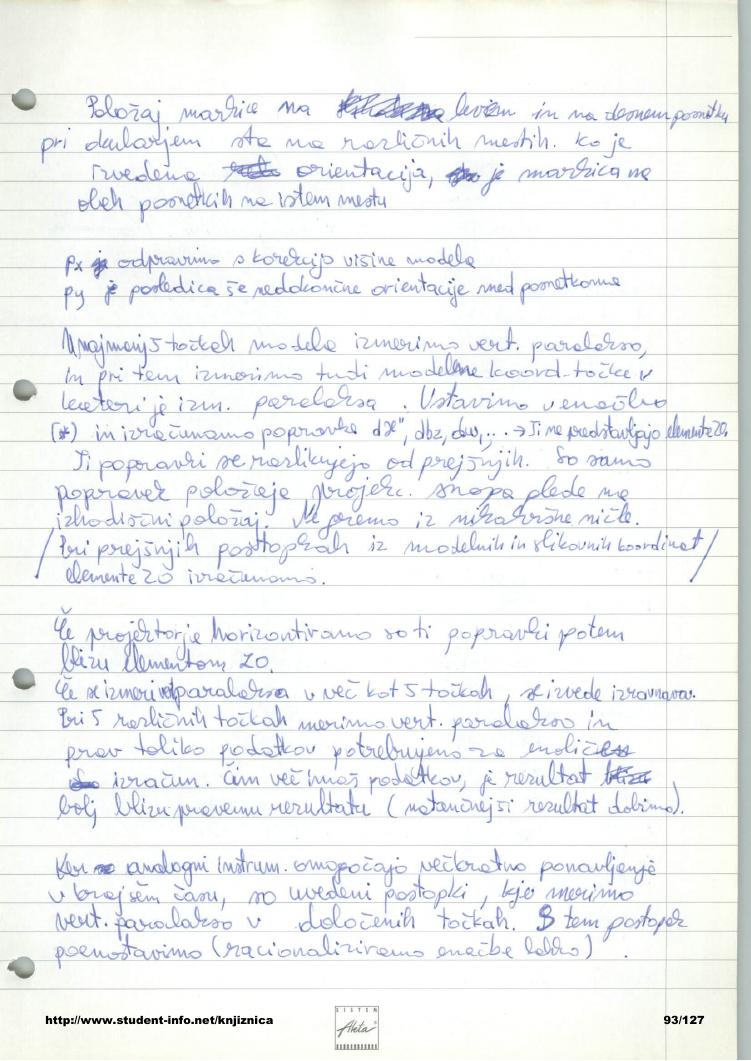 Položaj markice na levem in na desnem posnetku
pri okularjem sta na različnih mestih. Ko je
izvedena orientacija, je markica na
obeh posnetkih na istem mestu
px odpravimo s korekcijo višine modela
py je posledica še nedokončne orientacije med posnetkoma
V najmanj 5 točkah modela izmerimo vert. paralakso,
in pri tem izmerimo tudi modelne koord. točke v
kateri je izm. paralaksa. Vstavimo v enačbo
(*) in izračunamo popravke dϰ", dbz, dω,... → Ti ne predstavljajo elemente ZO.
Ti popravki se razlikujejo od prejšnjih. So samo
popravek položaja projekc. snopa glede na
izhodiščni položaj. Ne gremo iz nikakršne ničle.
/ Pri prejšnjih postopkah iz modelnih in slikovnih koordinat /
elemente ZO izračunamo.
Če projektorje horizontiramo so ti popravki potem
blizu elementom ZO.
Če se izmeri vert. paralaksa v več kot 5 točkah, se izvede izravnava.
Pri 5 različnih točkah merimo vert. paralakso in
prav toliko podatkov potrebujemo za enolič
izračun. Čim več imaš podatkov, je rezultat
bolj blizu pravemu rezultatu (natančnejši rezultat dobimo).
Ker analogni instrum. omogočajo večkratno ponavljanje
v krajšem času, so uvedeni postopki, kjer merimo
vert. paralakso v določenih točkah. S tem postopek
poenostavimo (racionaliziramo enačbe lahko).
http://www.student-info.net/knjiznica
SISTEM
Akta
93/127